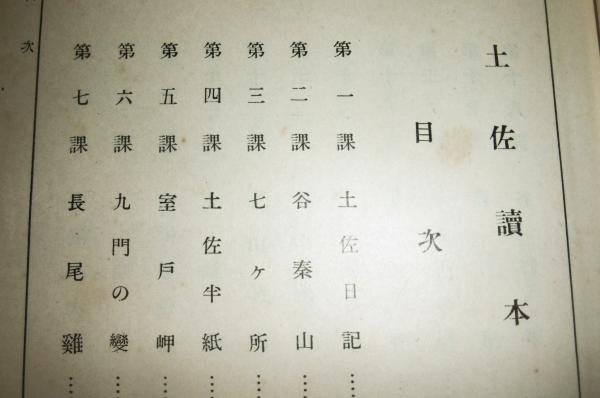 土佐讀本
目次
第一課 土佐日記……
第二課 谷秦山……
第三課 七ヶ所……
第四課 土佐半紙……
第五課 室戶岬……
第六課 九門の變……
第七課 長尾雞……
次